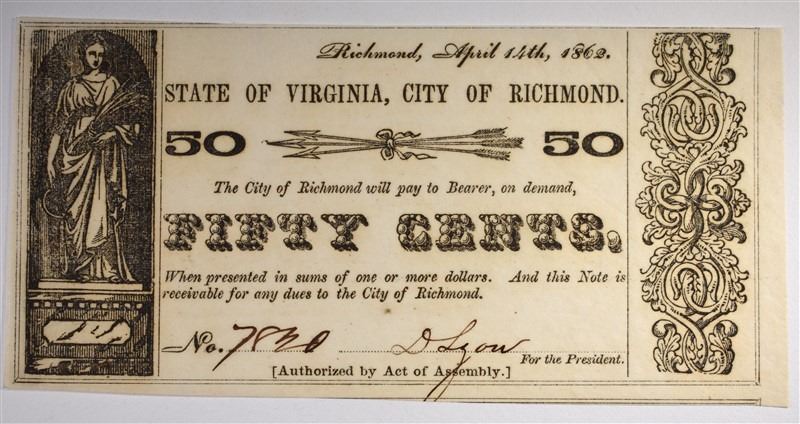 Richmond, April 14th, 1862.
STATE OF VIRGINIA, CITY OF RICHMOND.
50 50
The City of Richmond will pay to Bearer, on demand,
FIFTY CENTS,
When presented in sums of one or more dollars. And this Note is
receivable for any dues to the City of Richmond.
No. 7830
For the President.
[Authorized by Act of Assembly.]